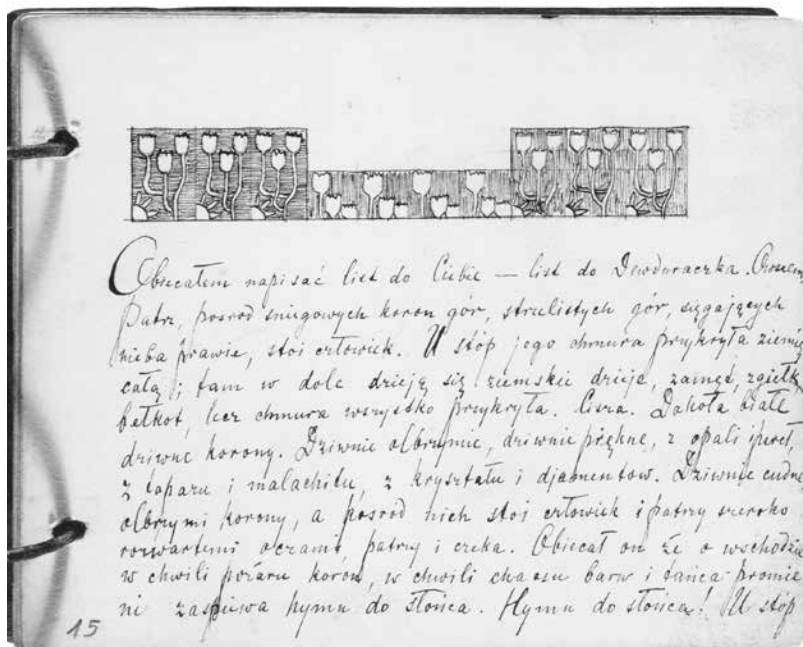 Obiecałem napisać list do Ciebie — list do Dewduraczka.
Patrz, pośród śniegowych koron gór, strzelistych gór, sięgających
nieba prawie, stoi człowiek. U stóp jego chmura przykryła ziemię
całą; tam w dole dzieją się ziemskie dzieje, zamęt, zgiełk,
bełkot, lecz chmura wszystko przykryła. Cisza. Dokoła białe
dziwne korony. Dziwnie olbrzymie, dziwnie piękne, z opali i pereł,
z topazu i malachitu, z kryształu i djamentów. Dziwnie cudne
olbrzymi korony, a pośród nich stoi człowiek i patrzy szeroko
rozwartemi oczami, patrzy i czeka. Obiecał on że o wschodzie
w chwili pożaru koron, w chwili chaosu barw i tańca promie
ni zaśpiewa hymn do słońca. Hymn do słońca! U stóp
15